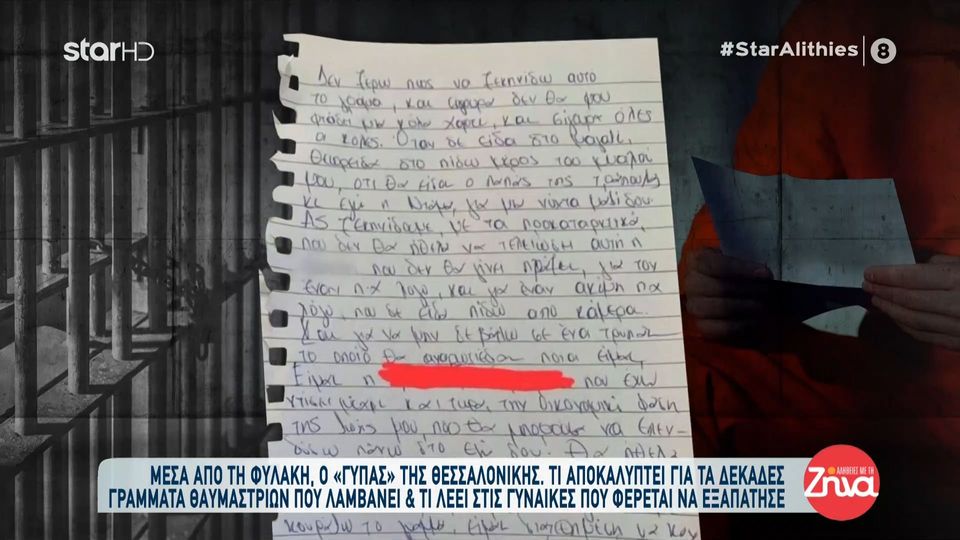 star HD
#StarAlithies 8
Δεν ξερω πως να ξεκινίδω αυτό
το γραμμα, και σιγουρα δεν θα μου
φτάδη μια κόλα χαρτί, και είχαμε όλες
οι κόλες. Όταν δε είδα στο γυαλί,
στο πίδω μέρος του μυαλού
μου, οτι θα είσαι ο παπάς της τράπουλας
κι εγώ η Ντάμα, για μια νύχτα μαζί δου.
Ας ξεκινήδουμε, με τα προκαταρτικά,
που δεν θα ήθελα να τελειώσει αυτή η
που δεν θα γίνει πράξει, για τον
έναν π.χ λόγο, και για έναν ακόμη πχ
λόγο, που δε είδα πίδω από κάμερα.
Και για να μην δε βάλω σε ένα τρυπάκι
το οποίο θα αναρωτιέδαι ποια είμαι,
Είμαι η που έχω
και τώρα, την οικονομική φάση
της ζωής μου που θα μπορούσα να επεν-
δύσω πάνω στο εγώ δου. Θα ήθελα
ΜΕΣΑ ΑΠΟ ΤΗ ΦΥΛΑΚΗ, Ο «ΓΥΠΑΣ» ΤΗΣ ΘΕΣΣΑΛΟΝΙΚΗΣ. ΤΙ ΑΠΟΚΑΛΥΠΤΕΙ ΓΙΑ ΤΑ ΔΕΚΑΔΕΣ
ΓΡΑΜΜΑΤΑ ΘΑΥΜΑΣΤΡΙΩΝ ΠΟΥ ΛΑΜΒΑΝΕΙ & ΤΙ ΛΕΕΙ ΣΤΙΣ ΓΥΝΑΙΚΕΣ ΠΟΥ ΦΕΡΕΤΑΙ ΝΑ ΕΞΑΠΑΤΗΣΕ
ΑΛΗΘΕΙΕΣ ΜΕ ΤΗ
Ζήνα
το γράμμα, είμαι να